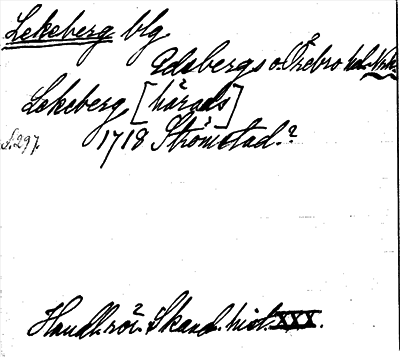 Lekeberg blg
Edsbergs o. Örebro hd. Nrke
Lekeberg [härads]
S. 297. 1718 Strömstad.?
Handl. rör. Skand. hist. XXX.